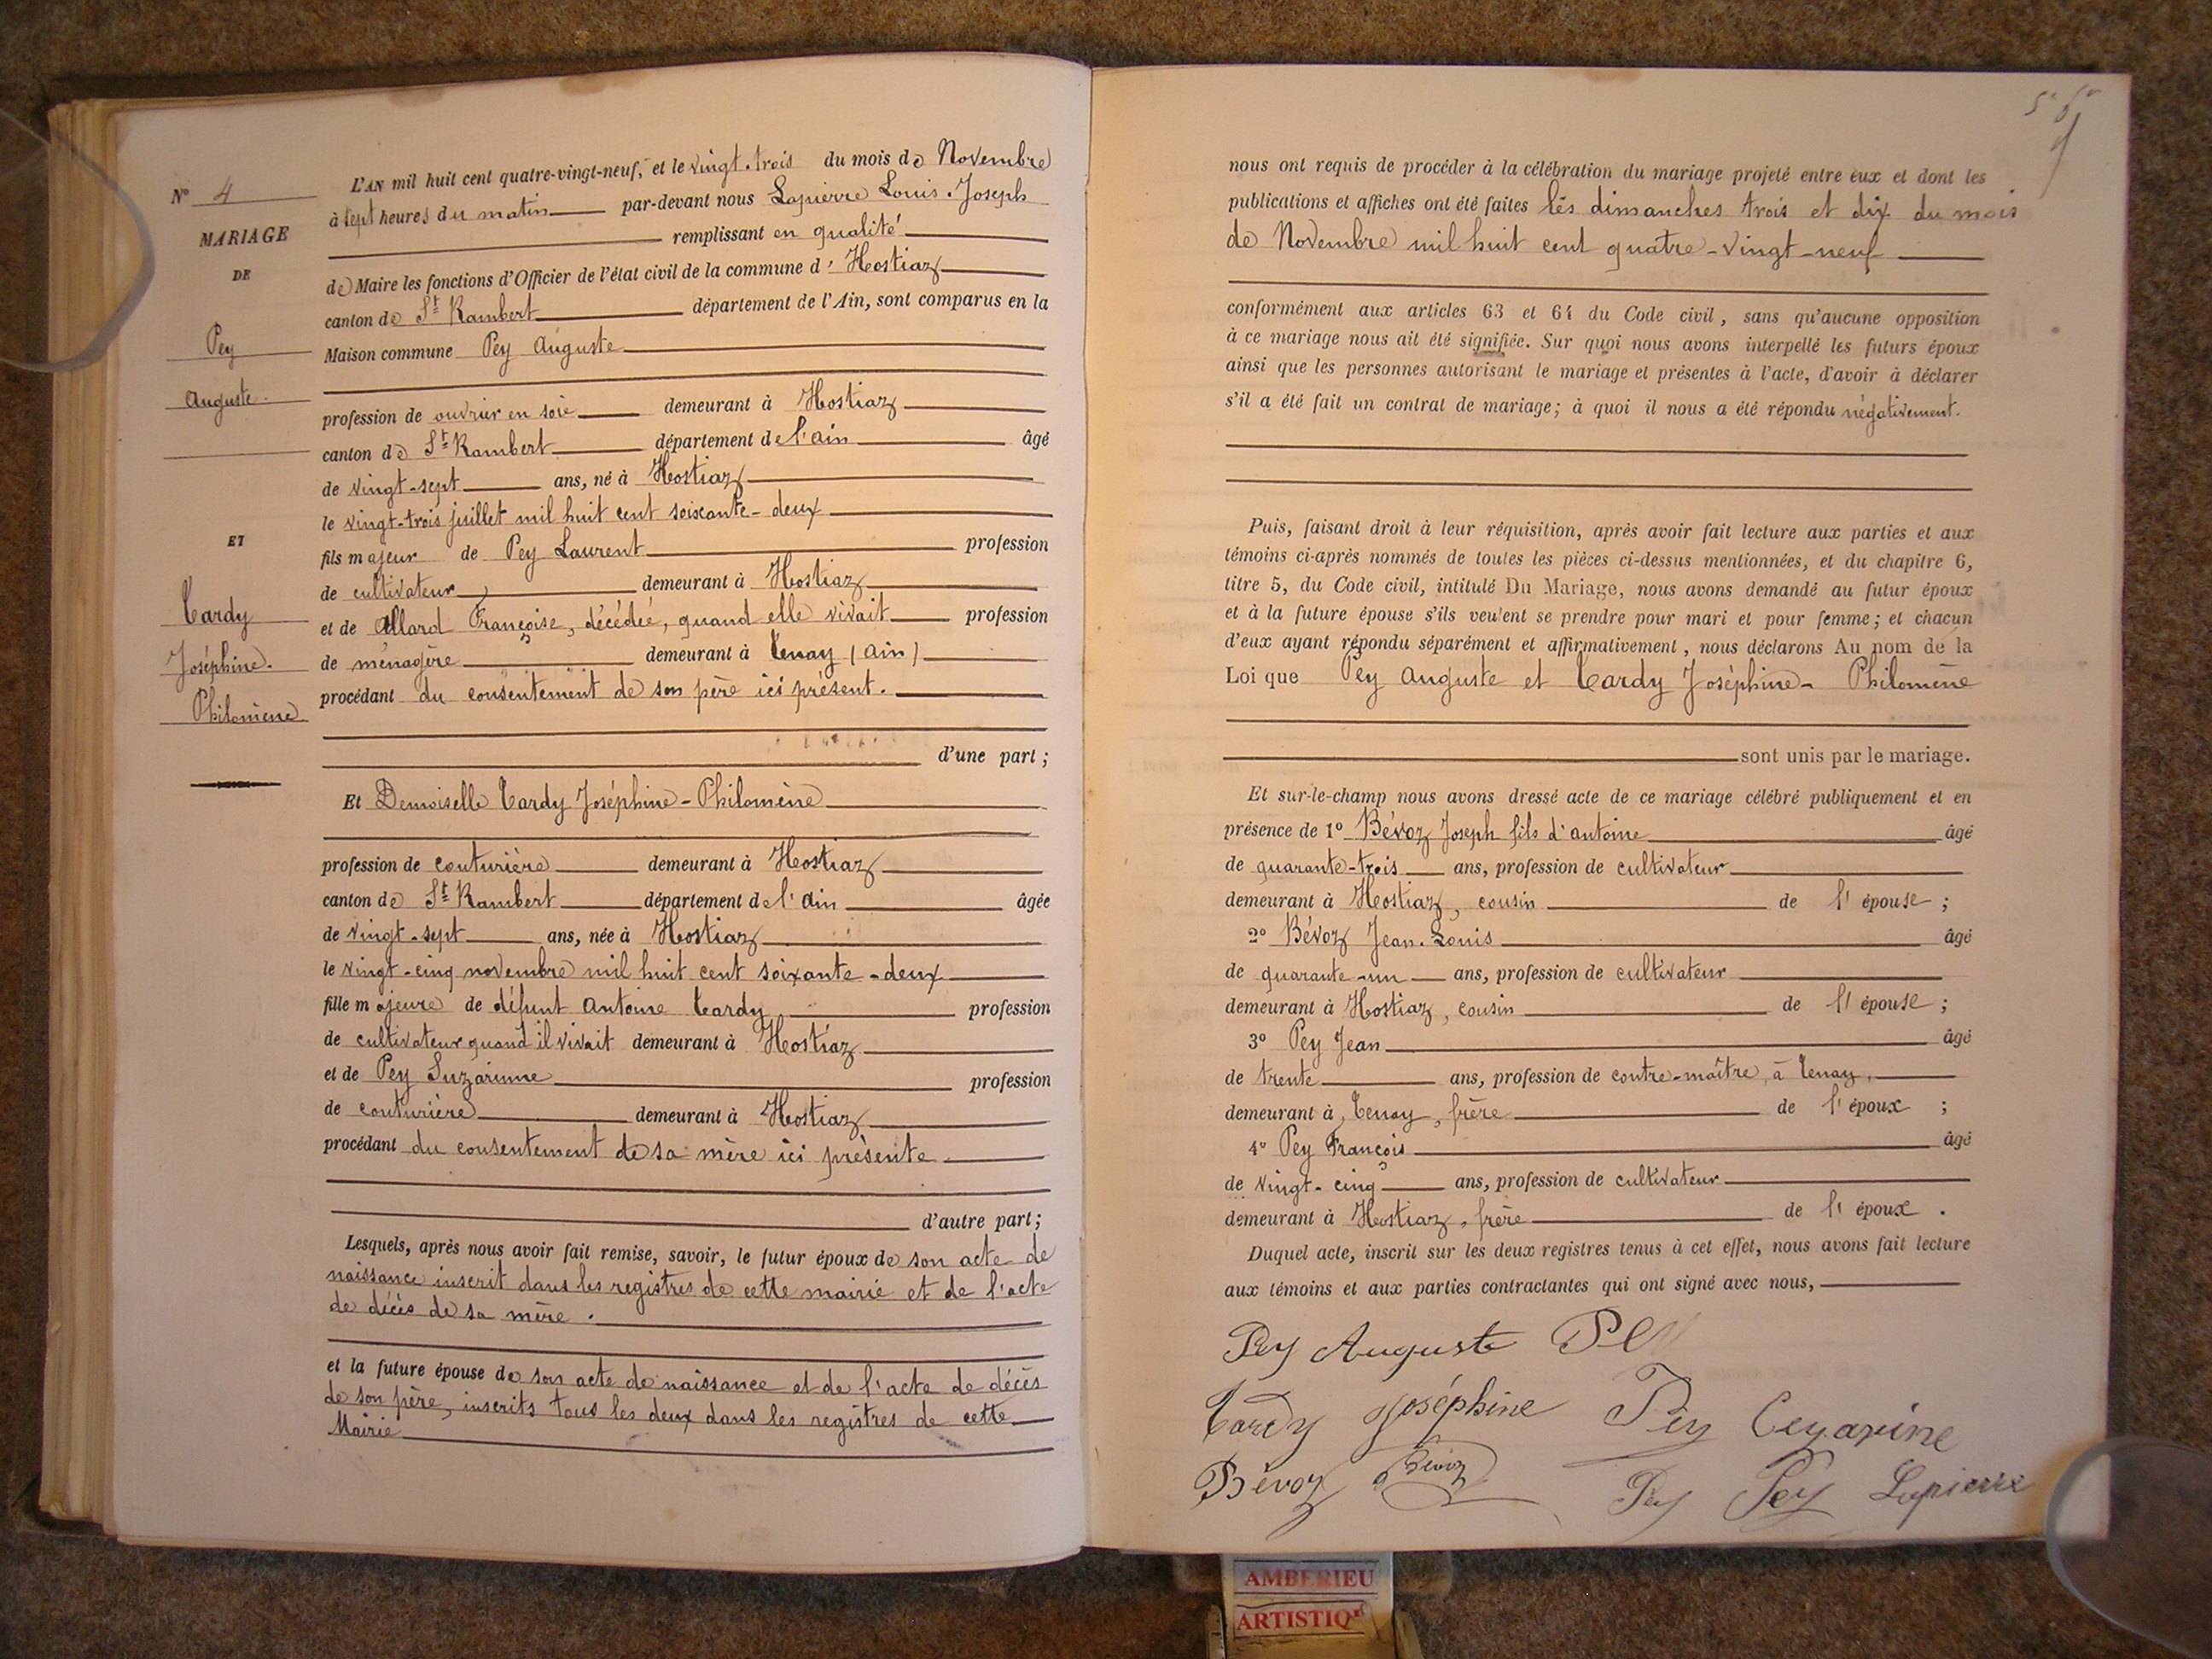 N° 4
MARIAGE
DE
Pey
Auguste.
ET
Tardy
Joséphine.
Philomène
L'AN mil huit cent quatre-vingt-neuf, et le vingt-trois du mois de Novembre
à sept heures du matin par-devant nous Lapierre Louis-Joseph
remplissant en qualité
de Maire les fonctions d'Officier de l'état civil de la commune d' Hostiaz
canton de St Rambert département de l'Ain, sont comparus en la
Maison commune Pey Auguste
profession de ouvrier en soie demeurant à Hostiaz
canton de St Rambert département de l'ain âgé
de vingt-sept ans, né à Hostiaz
le vingt-trois juillet mil huit cent soixante-deux
fils majeur de Pey Laurent profession
de cultivateur demeurant à Hostiaz
et de Allard Françoise, décédée, quand elle vivait profession
de ménagère demeurant à Tenay (Ain)
procédant du consentement de son père ici présent.
d'une part ;
Et Demoiselle Tardy Joséphine-Philomène
profession de couturière demeurant à Hostiaz
canton de St Rambert département de l'ain âgée
de vingt-sept ans, née à Hostiaz
le vingt-cinq novembre mil huit cent soixante-deux
fille majeure de défunt Antoine Tardy profession
de cultivateur quand il vivait demeurant à Hostiaz
et de Pey Suzarinne profession
de couturière demeurant à Hostiaz
procédant du consentement de sa mère ici présente.
d'autre part ;
Lesquels, après nous avoir fait remise, savoir, le futur époux de son acte de
naissance inscrit dans les registres de cette mairie et de l'acte
de décès de sa mère.
et la future épouse de son acte de naissance et de l'acte de décès
de son père, inscrits tous les deux dans les registres de cette
Mairie
nous ont requis de procéder à la célébration du mariage projeté entre eux et dont les
publications et affiches ont été faites les dimanches trois et dix du mois
de Novembre mil huit cent quatre-vingt-neuf
conformément aux articles 63 et 64 du Code civil, sans qu'aucune opposition
à ce mariage nous ait été signifiée. Sur quoi nous avons interpellé les futurs époux
ainsi que les personnes autorisant le mariage et présentes à l'acte, d'avoir à déclarer
s'il a été fait un contrat de mariage ; à quoi il nous a été répondu négativement.
Puis, faisant droit à leur réquisition, après avoir fait lecture aux parties et aux
témoins ci-après nommés de toutes les pièces ci-dessus mentionnées, et du chapitre 6,
titre 5, du Code civil, intitulé Du Mariage, nous avons demandé au futur époux
et à la future épouse s'ils veulent se prendre pour mari et pour femme ; et chacun
d'eux ayant répondu séparément et affirmativement, nous déclarons Au nom de la
Loi que Pey Auguste et Tardy Joséphine-Philomène
sont unis par le mariage.
Et sur-le-champ nous avons dressé acte de ce mariage célébré publiquement et en
présence de 1° Bévoz Joseph fils d'antoine âgé
de quarante-trois ans, profession de cultivateur
demeurant à Hostiaz, cousin de l'épouse ;
2° Bévoz Jean-Louis âgé
de quarante-un ans, profession de cultivateur
demeurant à Hostiaz, cousin de l'épouse ;
3° Pey Jean âgé
de trente ans, profession de contre-maître, à Tenay,
demeurant à Tenay, frère de l'époux ;
4° Pey François âgé
de vingt-cinq ans, profession de cultivateur
demeurant à Hostiaz, frère de l'époux .
Duquel acte, inscrit sur les deux registres tenus à cet effet, nous avons fait lecture
aux témoins et aux parties contractantes qui ont signé avec nous,
Pey Auguste
Tardy Joséphine Pey
Bévoz Bévoz Pey Pey Lapierre
AMBERIEU
ARTISTIQ